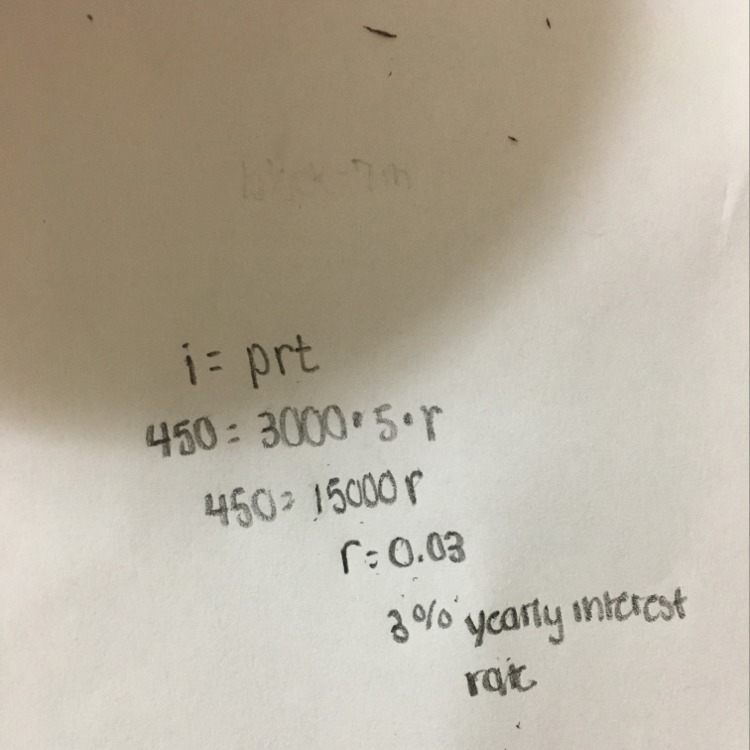 i = prt
450 = 3000 • 5 • r
450 = 15000 r
r = 0.03
3% yearly interest
rate